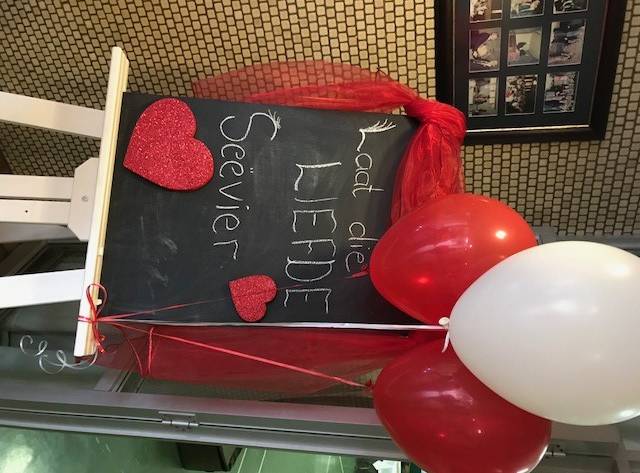 Laat die
LIEFDE
Seëvier